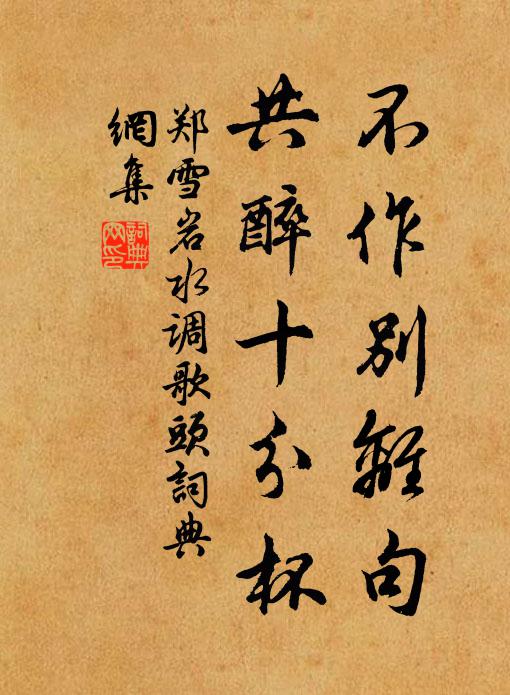 不作别離句
共醉十分杯
郑雪岩水调歌頭詞典
網集
詞典
网印